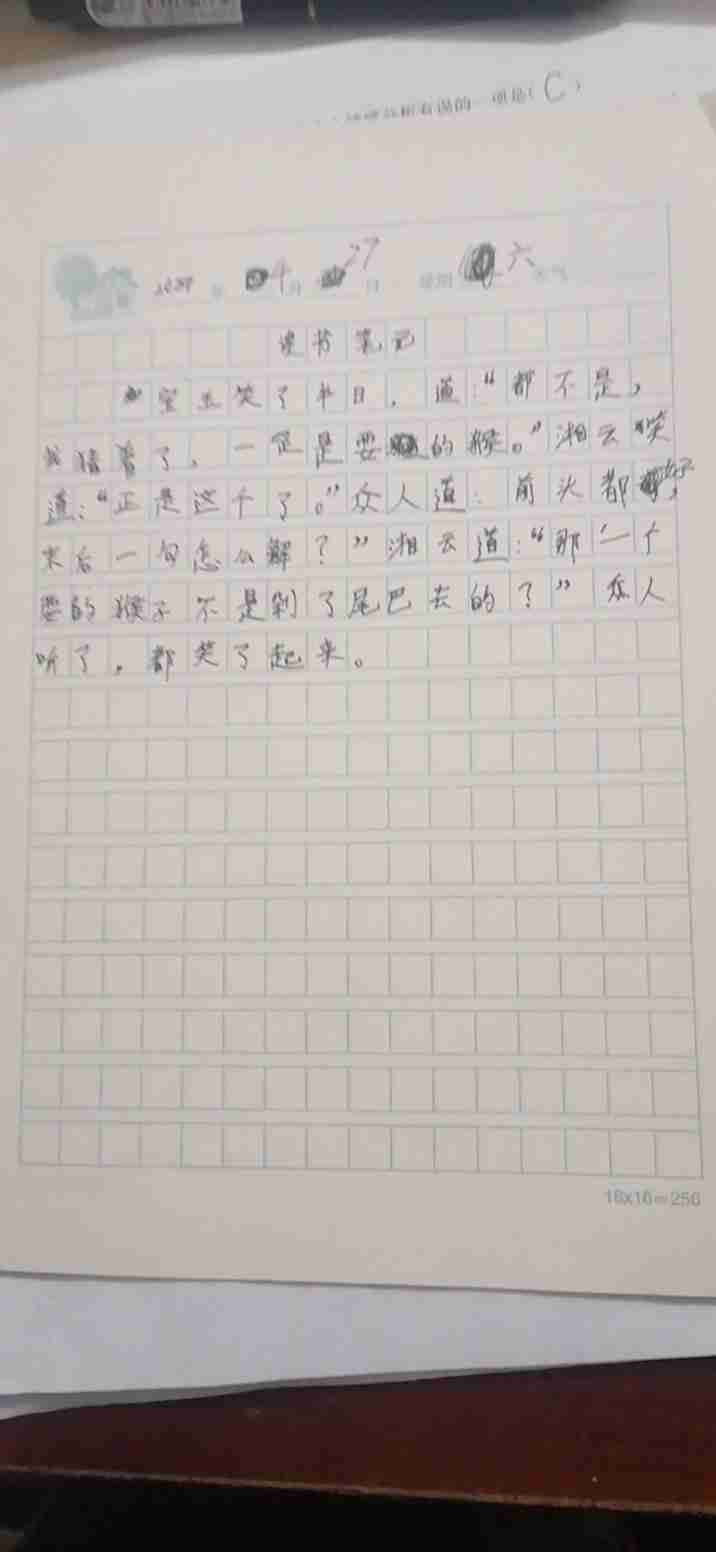 的一项是(C)
2024年 4月 27日 星期六 天气
读书笔记
宝玉笑了半日，道:“都不是，
我猜着了，一定是耍的猴。”湘云笑
道:“正是这个了。”众人道:前头都好,
末后一句怎么解？”湘云道:“那一个
耍的猴子不是剁了尾巴去的？”众人
听了，都笑了起来。
16x16=256